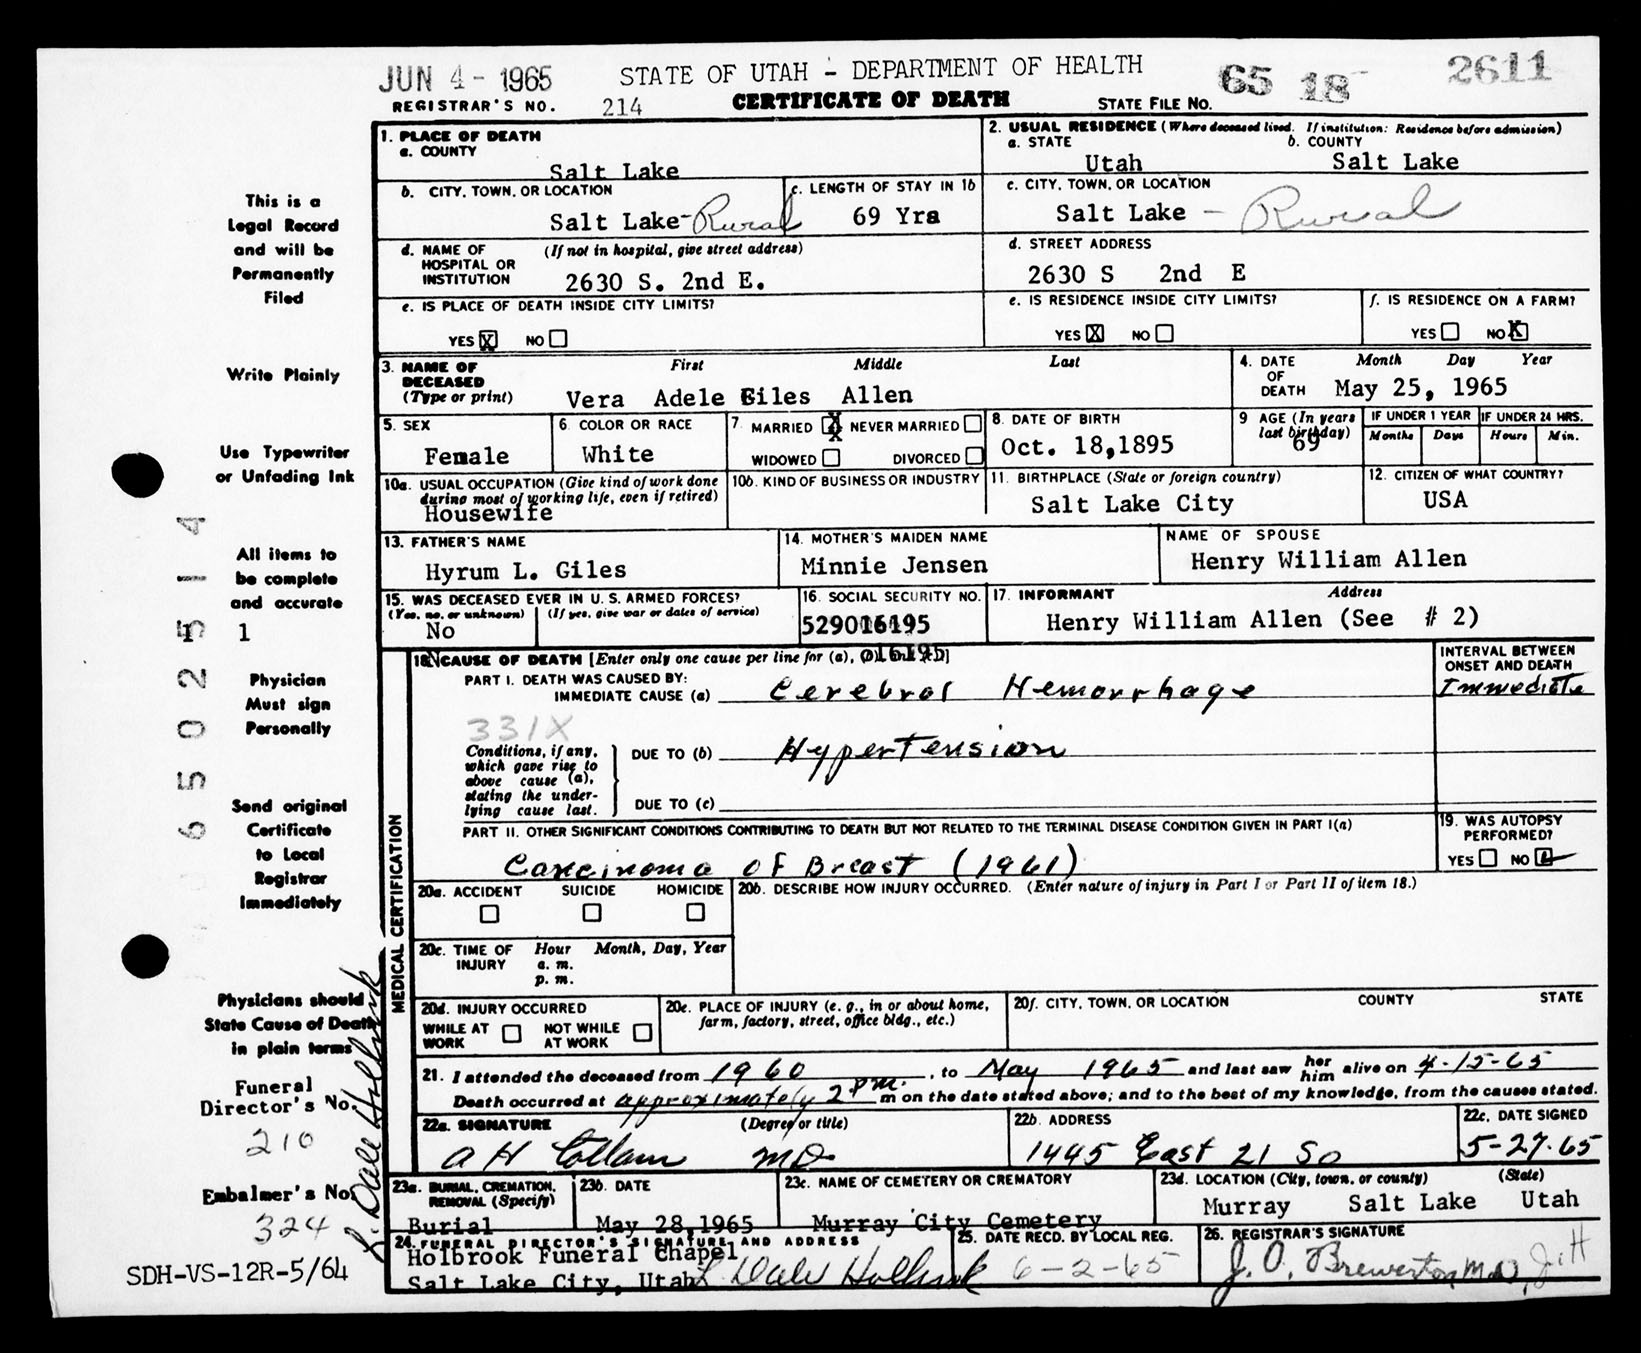 JUN 4 - 1965
STATE OF UTAH - DEPARTMENT OF HEALTH
65 18 2611
REGISTRAR'S NO. 214 CERTIFICATE OF DEATH STATE FILE No.
1. PLACE OF DEATH
a. COUNTY
Salt Lake
2. USUAL RESIDENCE (Where deceased lived. If institution: Residence before admission)
a. STATE b. COUNTY
Utah Salt Lake
b. CITY, TOWN, OR LOCATION
Salt Lake - Rural
c. LENGTH OF STAY IN 1b
69 Yrs
c. CITY, TOWN, OR LOCATION
Salt Lake - Rural
d. NAME OF HOSPITAL OR INSTITUTION (If not in hospital, give street address)
2630 S. 2nd E.
d. STREET ADDRESS
2630 S 2nd E
e. IS PLACE OF DEATH INSIDE CITY LIMITS?
YES X NO
e. IS RESIDENCE INSIDE CITY LIMITS?
YES X NO
f. IS RESIDENCE ON A FARM?
YES NO X
3. NAME OF DECEASED (Type or print) First Middle Last
Vera Adele Giles Allen
4. DATE OF DEATH Month Day Year
May 25, 1965
5. SEX
Female
6. COLOR OR RACE
White
7. MARRIED X NEVER MARRIED
WIDOWED DIVORCED
8. DATE OF BIRTH
Oct. 18,1895
9 AGE (In years last birthday)
69
IF UNDER 1 YEAR IF UNDER 24 HRS.
Months Days Hours Min.
10a. USUAL OCCUPATION (Give kind of work done during most of working life, even if retired)
Housewife
10b. KIND OF BUSINESS OR INDUSTRY
11. BIRTHPLACE (State or foreign country)
Salt Lake City
12. CITIZEN OF WHAT COUNTRY?
USA
13. FATHER'S NAME
Hyrum L. Giles
14. MOTHER'S MAIDEN NAME
Minnie Jensen
NAME OF SPOUSE
Henry William Allen
15. WAS DECEASED EVER IN U. S. ARMED FORCES?
(Yes, no, or unknown) (If yes, give war or dates of service)
No
16. SOCIAL SECURITY NO.
529016195
016195
17. INFORMANT Address
Henry William Allen (See # 2)
18. CAUSE OF DEATH [Enter only one cause per line for (a), (b), and (c)]
PART I. DEATH WAS CAUSED BY:
IMMEDIATE CAUSE (a) Cerebral Hemorrhage
INTERVAL BETWEEN ONSET AND DEATH
Immediate
331X
Conditions, if any, which gave rise to above cause (a), stating the underlying cause last.
DUE TO (b) Hypertension
DUE TO (c)
PART II. OTHER SIGNIFICANT CONDITIONS CONTRIBUTING TO DEATH BUT NOT RELATED TO THE TERMINAL DISEASE CONDITION GIVEN IN PART I(a)
Carcinoma of Breast (1961)
19. WAS AUTOPSY PERFORMED?
YES NO
20a. ACCIDENT SUICIDE HOMICIDE
20b. DESCRIBE HOW INJURY OCCURRED. (Enter nature of injury in Part I or Part II of item 18.)
20c. TIME OF INJURY Hour Month, Day, Year
a. m.
p. m.
20d. INJURY OCCURRED
WHILE AT WORK NOT WHILE AT WORK
20e. PLACE OF INJURY (e. g., in or about home, farm, factory, street, office bldg., etc.)
20f. CITY, TOWN, OR LOCATION COUNTY STATE
21. I attended the deceased from 1960, to May 1965 and last saw her him alive on 4-15-65
Death occurred at approximately 2 pm. m on the date stated above; and to the best of my knowledge, from the causes stated.
22a. SIGNATURE (Degree or title)
A H MD
22b. ADDRESS
1445 East 21 So
22c. DATE SIGNED
5-27-65
23a. BURIAL, CREMATION, REMOVAL (Specify)
Burial
23b. DATE
May 28,1965
23c. NAME OF CEMETERY OR CREMATORY
Murray City Cemetery
23d. LOCATION (City, town, or county) (State)
Murray Salt Lake Utah
24. FUNERAL DIRECTOR'S SIGNATURE AND ADDRESS
Holbrook Funeral Chapel
Salt Lake City, Utah L. Dale Holbrook
25. DATE RECD. BY LOCAL REG.
6-2-65
26. REGISTRAR'S SIGNATURE
J. O. Brewerton, M.D.
MEDICAL CERTIFICATION
This is a
Legal Record
and will be
Permanently
Filed
Write Plainly
Use Typewriter
or Unfading Ink
All items to
be complete
and accurate
1
Physician
Must sign
Personally
Send original
Certificate
to Local
Registrar
Immediately
Physicians should
State Cause of Death
in plain terms
Funeral
Director's No.
210
Embalmer's No.
324
L. Dale Holbrook
65 025514
SDH-VS-12R-5/64